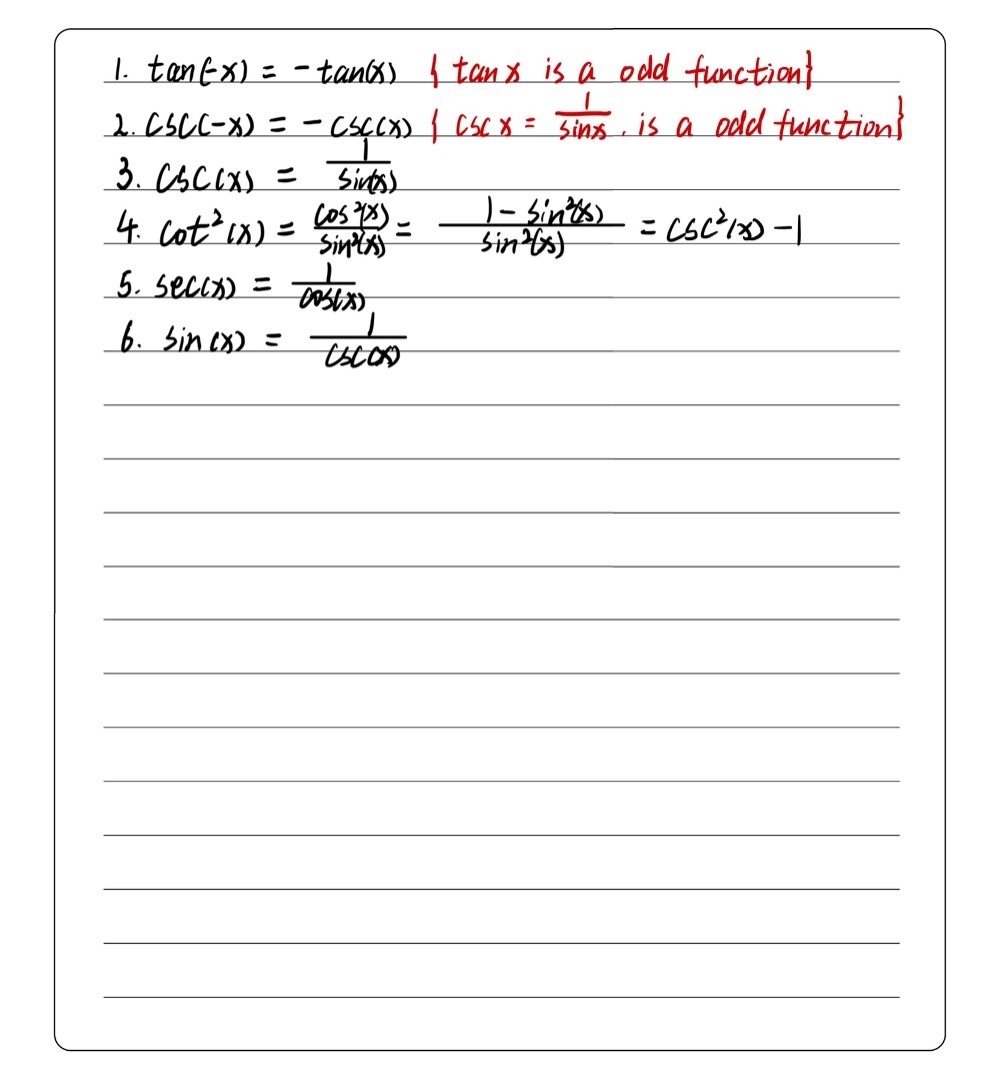 1. tan(-x) = - tan(x) { tan x is a odd function}
2. csc(-x) = - csc(x) { csc x = 1/sinx , is a odd function}
3. csc(x) = 1/sin(x)
4. cot²(x) = cos²(x)/sin²(x) = 1 - sin²(x)/sin²(x) = csc²(x) - 1
5. sec(x) = 1/cos(x)
6. sin(x) = 1/csc(x)